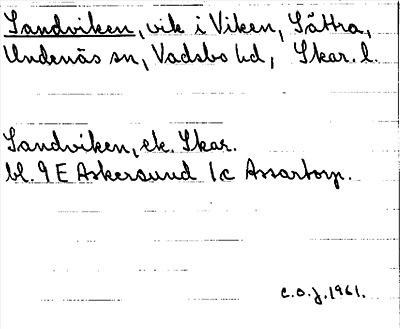 Sandviken, vik i Viken, Sätra,
Undenäs sn, Vadsbo hd, Skar. l.
Sandviken, ek. Skar.
bl. 9 E Askersund 1c Assartorp.
c.o.j. 1961.